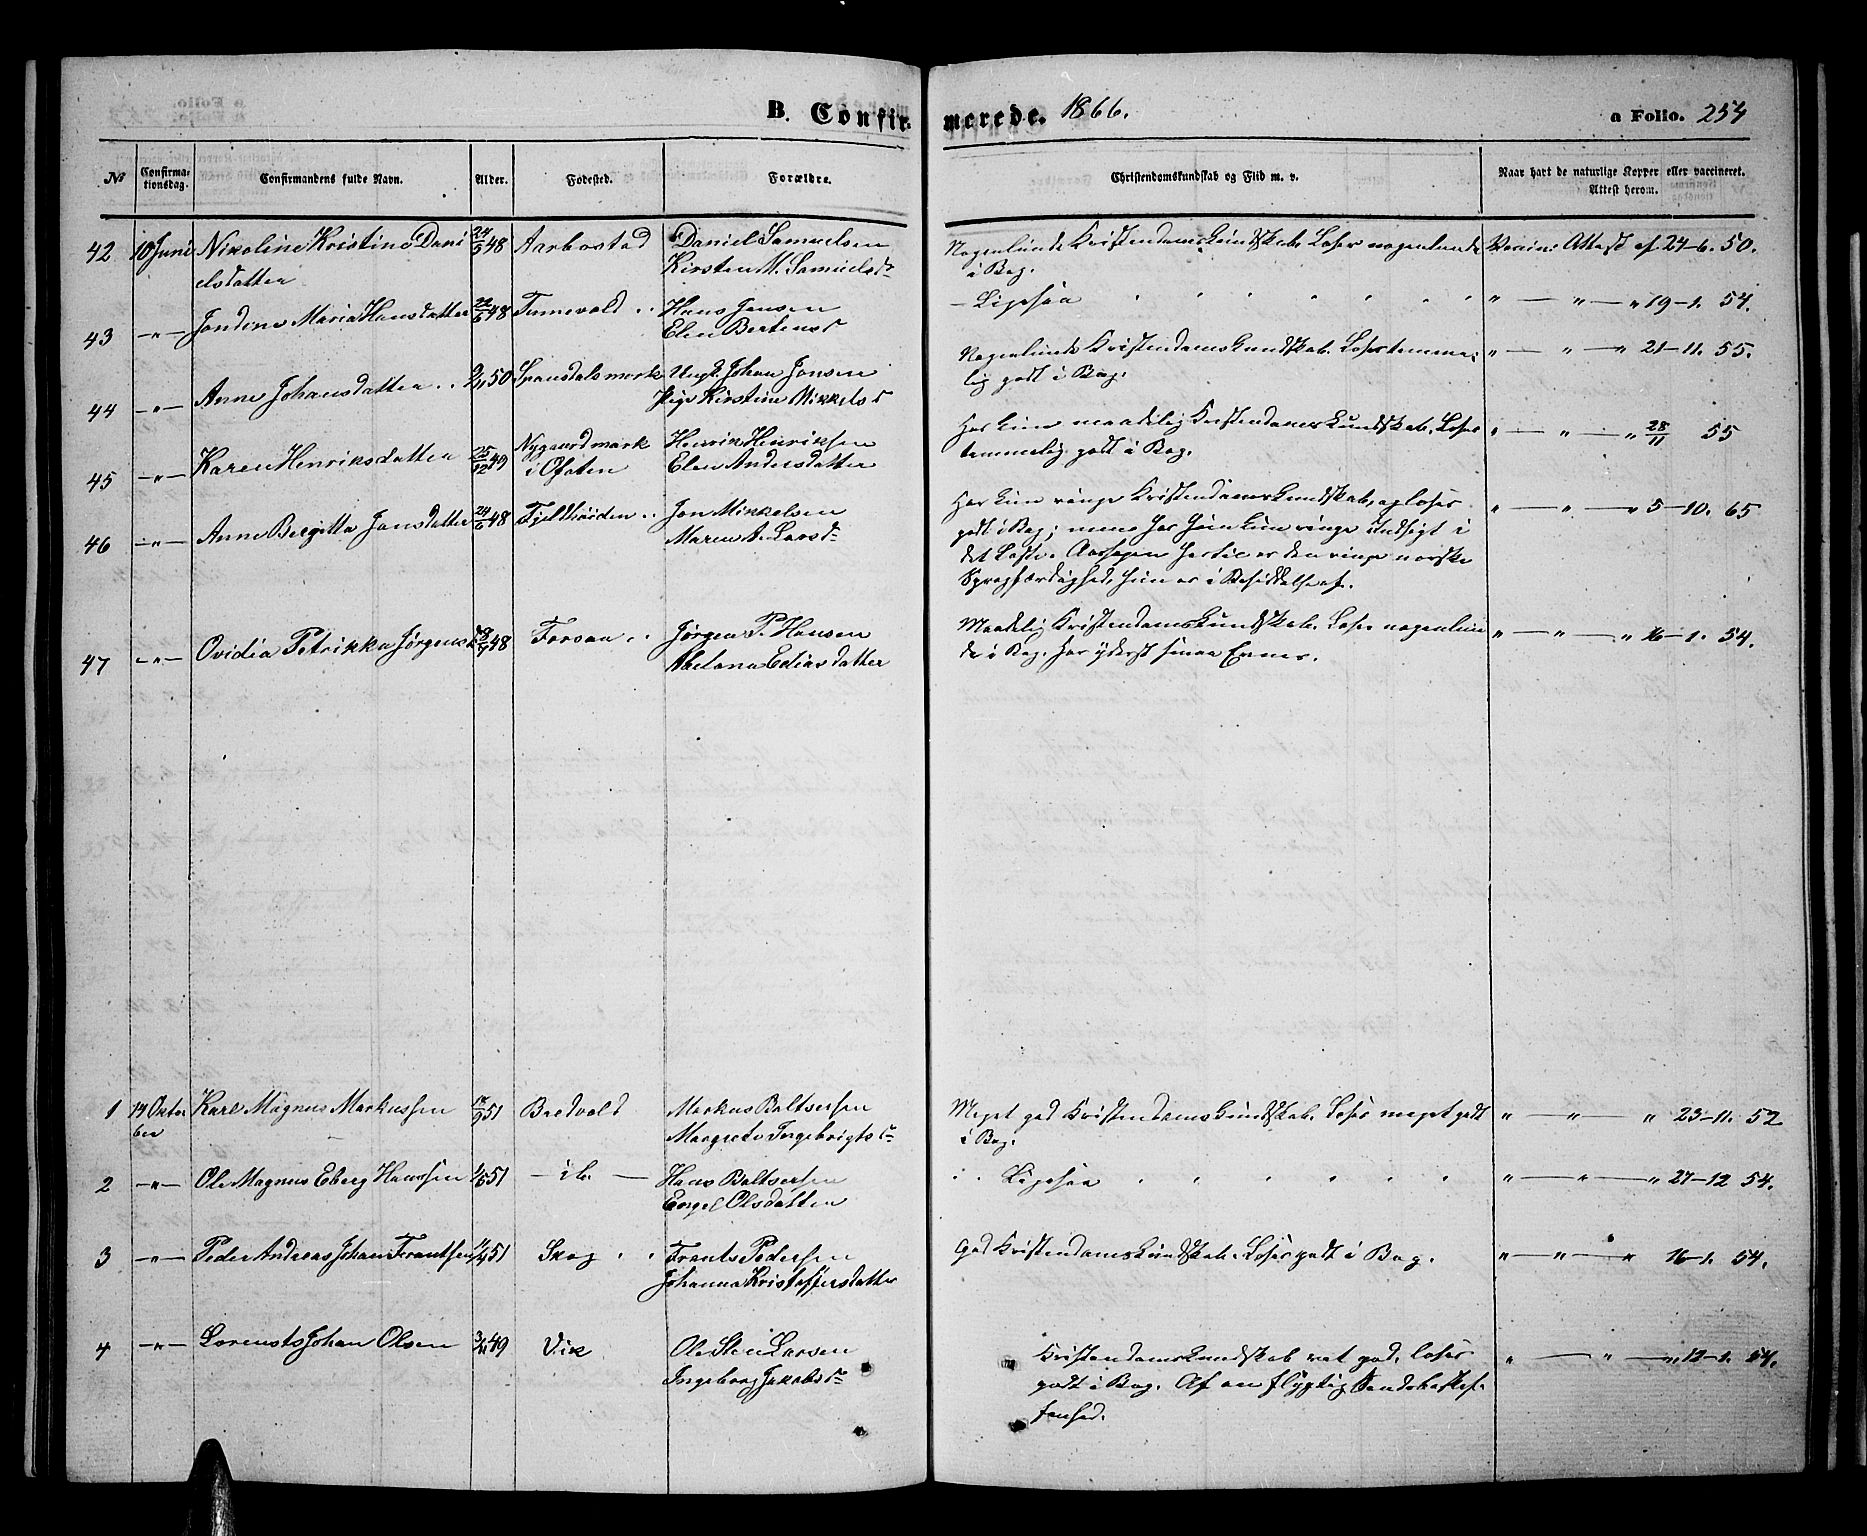 B. Confirmerede. 1866.
a Folio. 254
No Confirmationsdag. Confirmandens fulde Navn. Alder. Fødested. Forældre. Christendomskundskab og Flid m. v. Naar havt de naturlige Kopper eller vaccineret. Attest herom.
42 10 Juni Nikoline Kristine Dani 24/5 48 Aarbostad Daniel Samuelsen Nogenlunde Kristendomskundskab. Læser nogenlunde Vaccine Attest af 24-6. 50.
elsdatter Kirsten M. Samuelsdr i Bog.
43 -"- Jondine Maria Hansdatter 22/6 48 Tennevold .. Hans Jensen – Ligesaa " — " — " 19-1. 54.
Elen Bertensd
44 -"- Anne Johansdatter .. 2/11 50 Spansdalsmark Ungk. Johan Jonsen Nogenlunde Kristendomskundskab. Læser temme- " — " — " 21-11. 55.
Pige Kirstine Mikkelsd lig godt i Bog.
45 -"- Karen Henriksdatter 25/12 49 Nygaardmark Henrik Henriksen Har kun maadelig Kristendomskundskab. Læser " — " — " 28/11 55
i Ofoten Elen Andersdatter temmelig godt i Bog.
46 -"- Anne Bergitta Jonsdatter 24/6 48 Fjeldhøiden .. Jon Mikkelsen Har kun ringe Kristendomskundskab, og læser " — " — " 5-10. 65
Maren A. Larsdr godt i Bog; men har hun kun ringe Indsigt i
det Læste. Aarsagen hertil er den ringe norske
Sprogfærdighed, hun er i Besiddelse af.
47 -"- Ovidia Petrikka Jørgensd 48 Forsaa .. Jørgen P. Hansen Maadelig Kristendomskundskab. Læser nogenlun " — " — " 16-1. 54.
Abelona Eliasdatter de i Bog. Har yderst smaa Evner.
1 14 Okto Karl Magnus Markussen 18/9 51 Bredvold Markus Baltsersen Meget god Kristendomskundskab. Læser meget godt " " " 23-11. 52
ber Margrete Ingebrigtsdr i Bog.
2 -"- Ole Magnus Eberg Hanssen 51 – ib. – Hans Baltsersen Ligesaa " — " — " 27-12 54.
Engel Olsdatter
3 -"- Peder Andreas Johan Frantsen 51 Skog .. Frants Pedersen God Kristendomskundskab. Læser godt i Bog. " — " — " 16-1. 54.
Johanna Kristoffersdatter
4 -"- Lorents Johan Olsen 49 Vik Ole Steen Larsen Kristendomskundskab ret god. Læser " — " — " 12-1. 54.
Ingeborg Jakobsdr godt i Bog. Af en flygtig